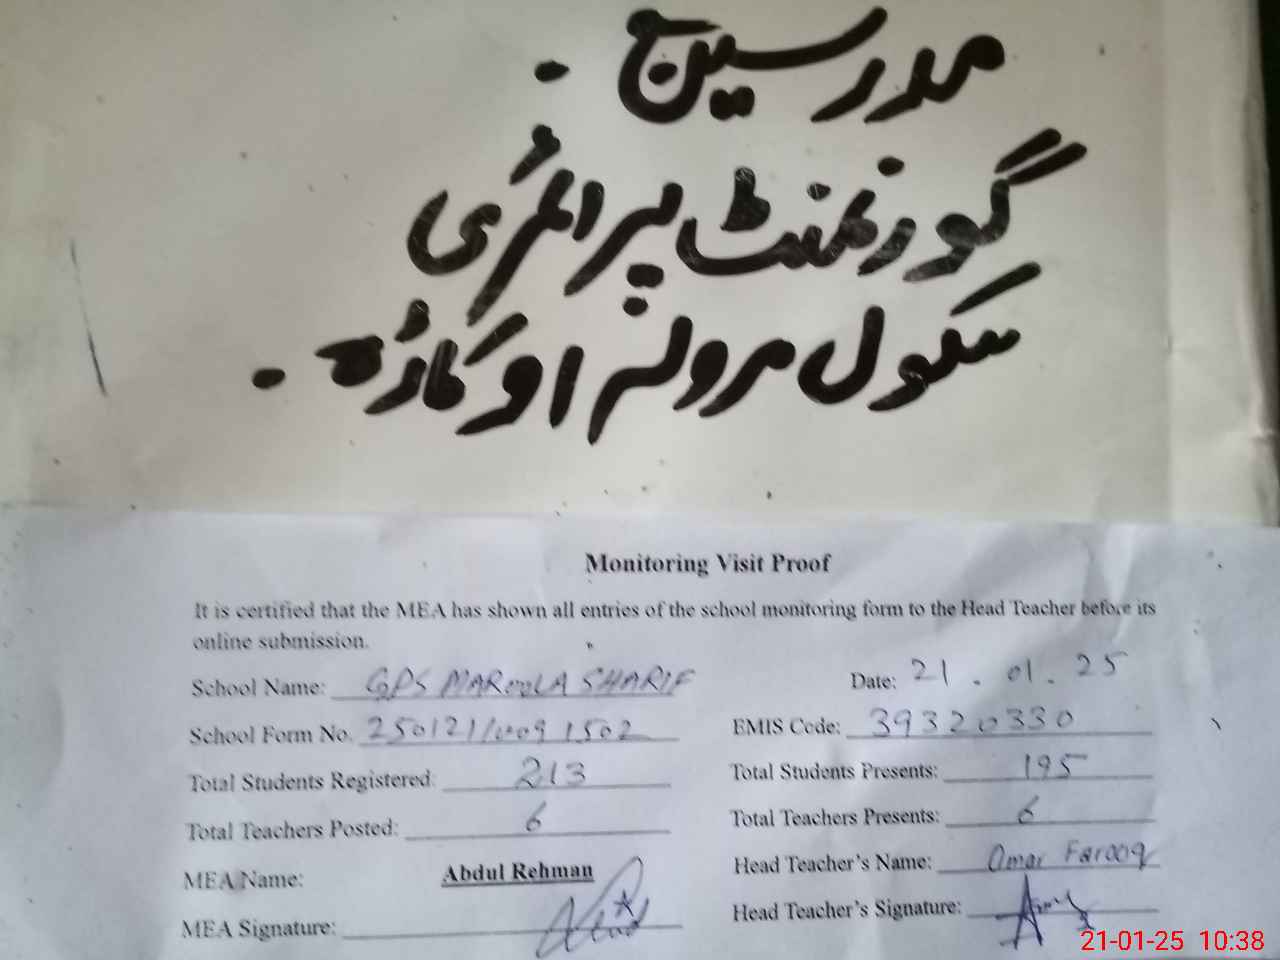 مدرسین ج ۔
گورنمنٹ پرائمری
سکول مرولہ اوکاڑہ ۔
Monitoring Visit Proof
It is certified that the MEA has shown all entries of the school monitoring form to the Head Teacher before its
online submission.
School Name: GPS MAROOLA SHARIF Date: 21.01.25
School Form No. 250121/0091502 EMIS Code: 39320330
Total Students Registered: 213 Total Students Presents: 195
Total Teachers Posted: 6 Total Teachers Presents: 6
MEA Name: Abdul Rehman Head Teacher's Name: Omar Farooq
MEA Signature: Head Teacher's Signature:
21-01-25 10:38